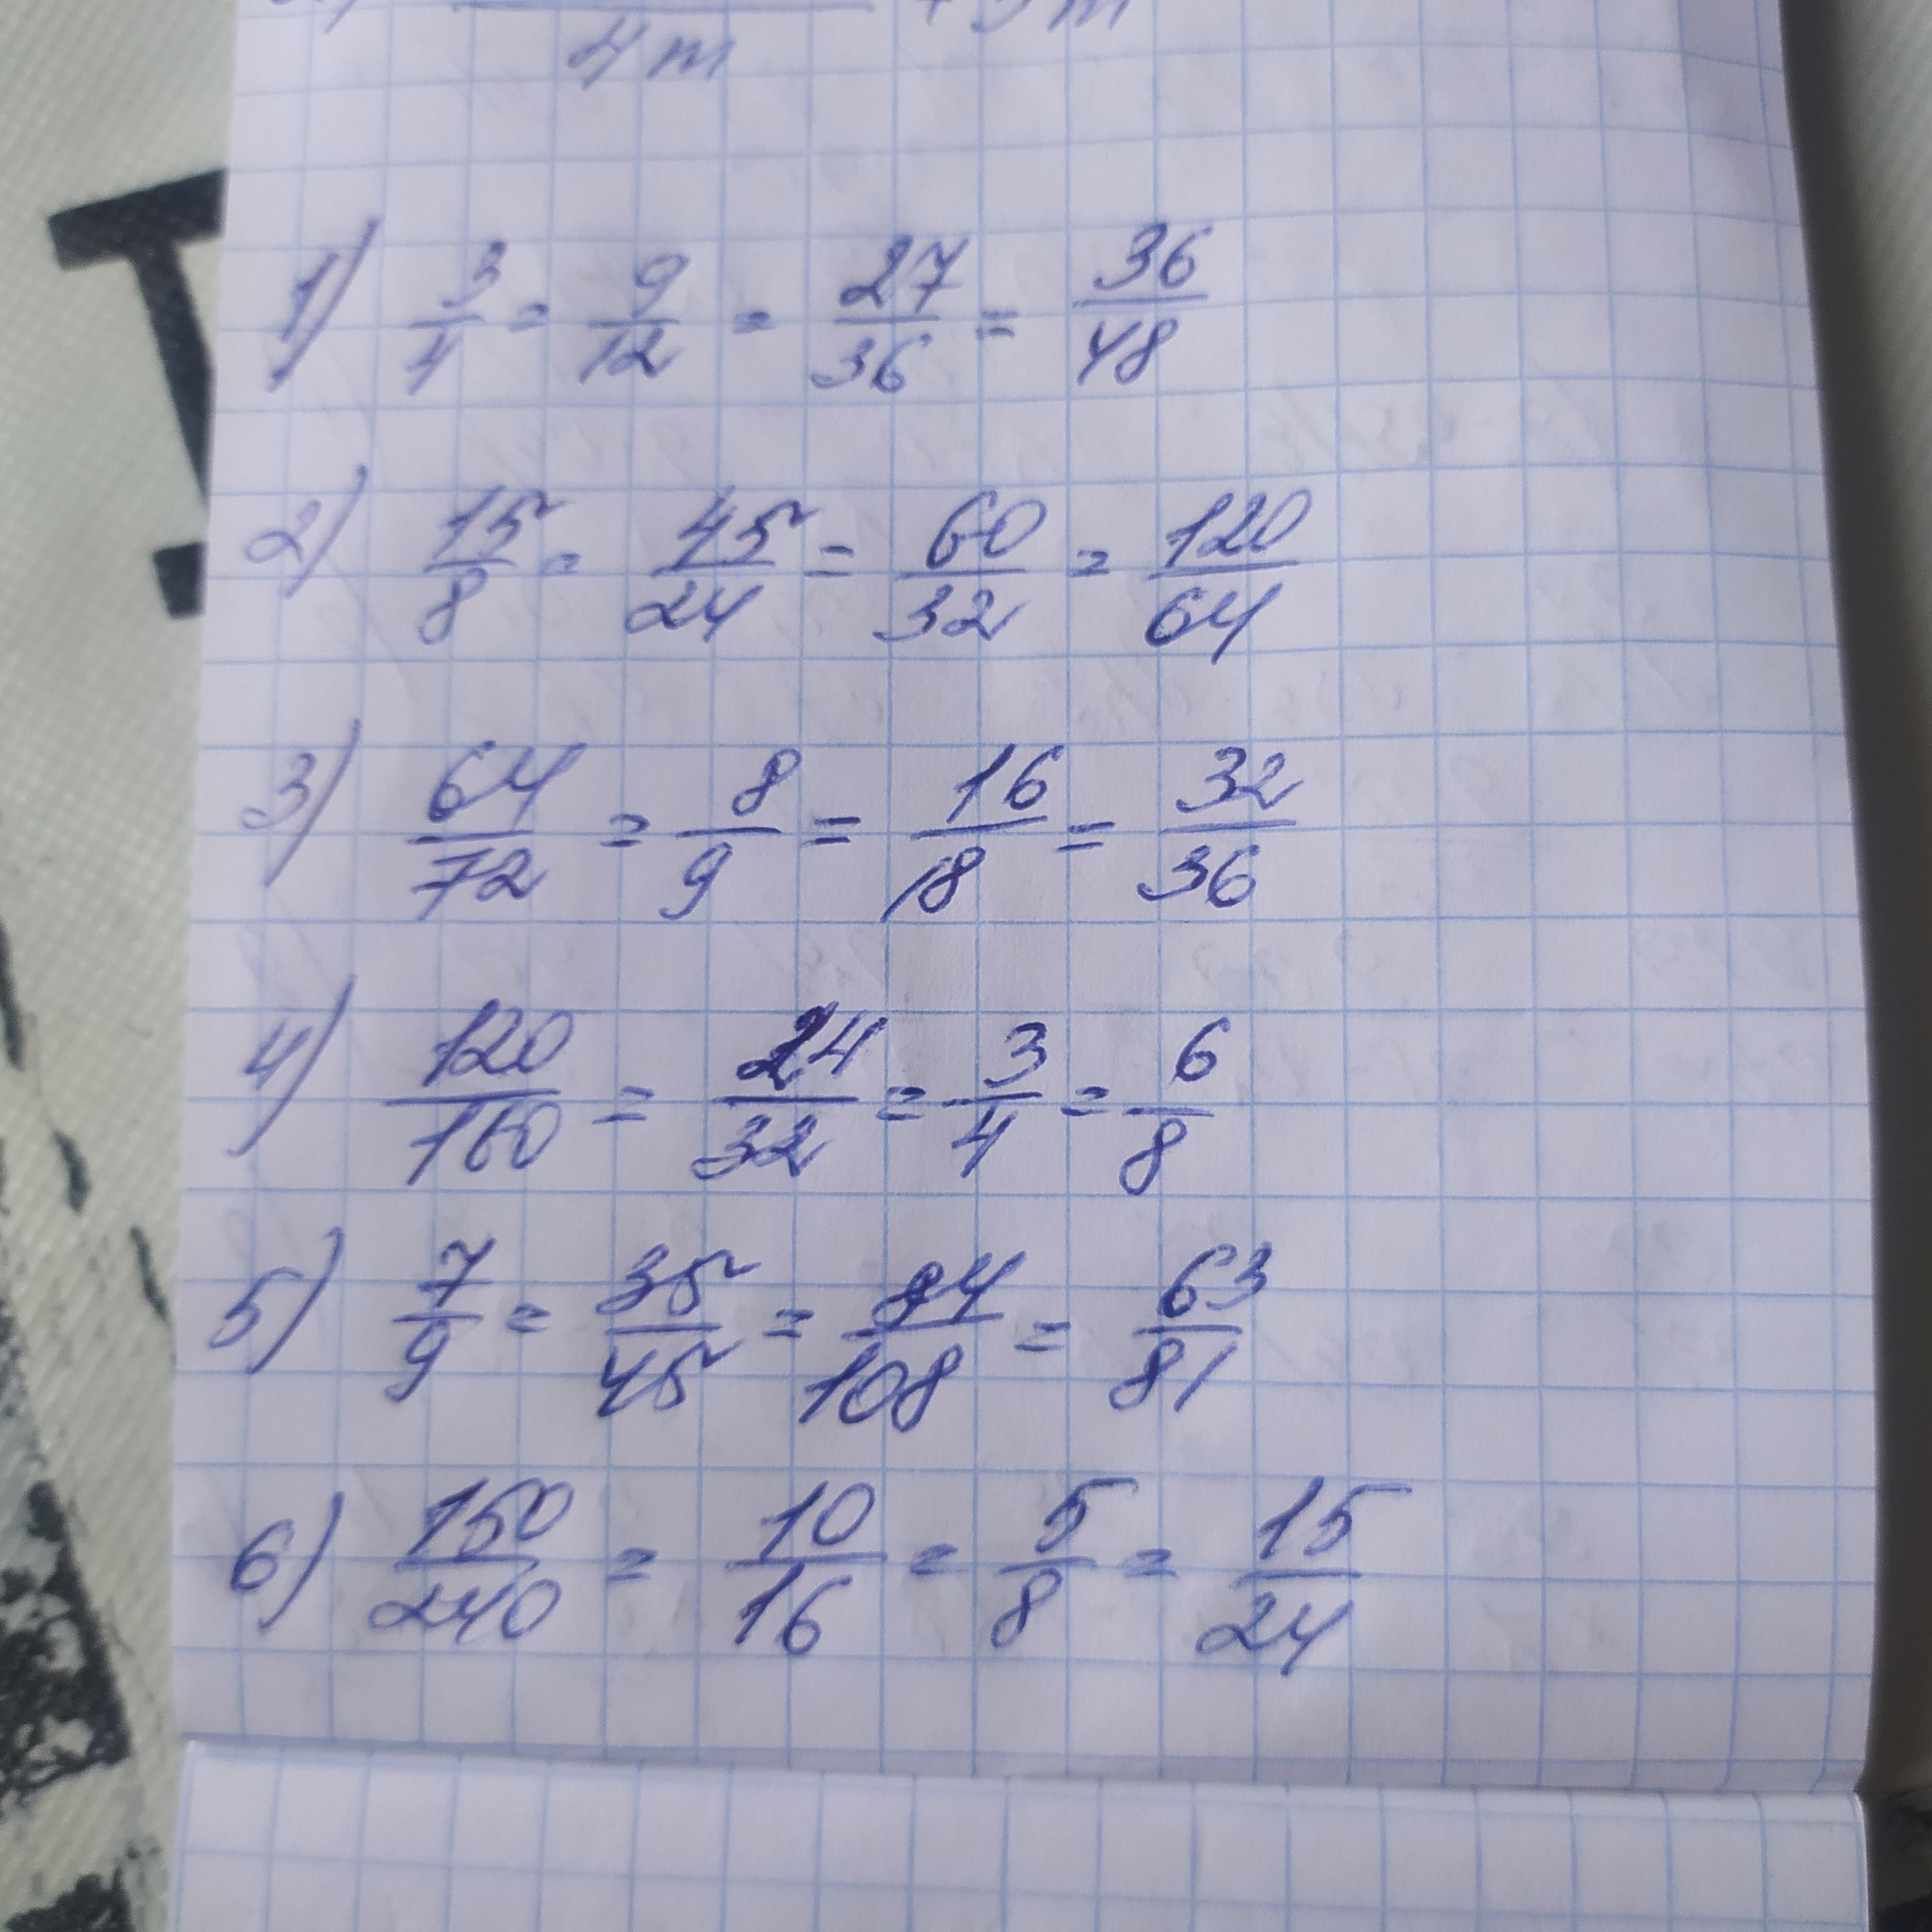 4m
1) 3/4 = 9/12 = 27/36 = 36/48
2) 15/8 = 45/24 = 60/32 = 120/64
3) 64/72 = 8/9 = 16/18 = 32/36
4) 120/160 = 24/32 = 3/4 = 6/8
5) 7/9 = 35/45 = 84/108 = 63/81
6) 150/240 = 10/16 = 5/8 = 15/24